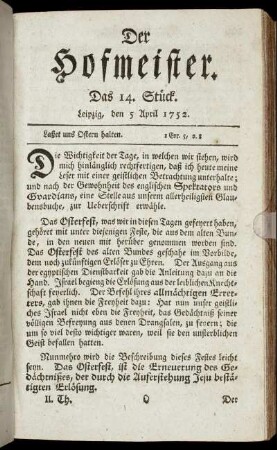 Der
Hofmeister.
Das 14. Stück.
Leipzig, den 5 April 1752.
Lasset uns Ostern halten. 1 Cor. 5, v. 8
Die Wichtigkeit der Tage, in welchen wir stehen, wird
mich hinlänglich rechtfertigen, daß ich heute meine
Leser mit einer geistlichen Betrachtung unterhalte;
und nach der Gewohnheit des englischen Spektators und
Guardians, eine Stelle aus unserm allerheiligsten Glau-
bensbuche, zur Ueberschrift erwähle.
Das Osterfest, was wir in diesen Tagen gefeyert haben,
gehöret mit unter diejenigen Feste, die aus dem alten Bun-
de, in den neuen mit herüber genommen worden sind.
Das Osterfest des alten Bundes geschahe im Vorbilde,
dem noch zukünftigen Erlöser zu Ehren. Der Ausgang aus
der egyptischen Dienstbarkeit gab die Anleitung dazu an die
Hand. Israel begieng die Erlösung aus der leiblichen Knecht-
schaft feyerlich. Der Befehl ihres allmächtigen Erret-
ters, gab ihnen die Freyheit dazu: Hat nun unser geistli-
ches Israel nicht eben die Freyheit, das Gedächtniß seiner
völligen Befreyung aus denen Drangsalen, zu feuern; die
um so viel desto wichtiger waren, weil sie den unsterblichen
Geist befallen hatten.
Nunmehro wird die Beschreibung dieses Festes leicht
seyn. Das Osterfest, ist die Erneuerung des Ge-
dächtnißes, der durch die Auferstehung Jesu bestä-
tigten Erlösung.
II. Th. O Der